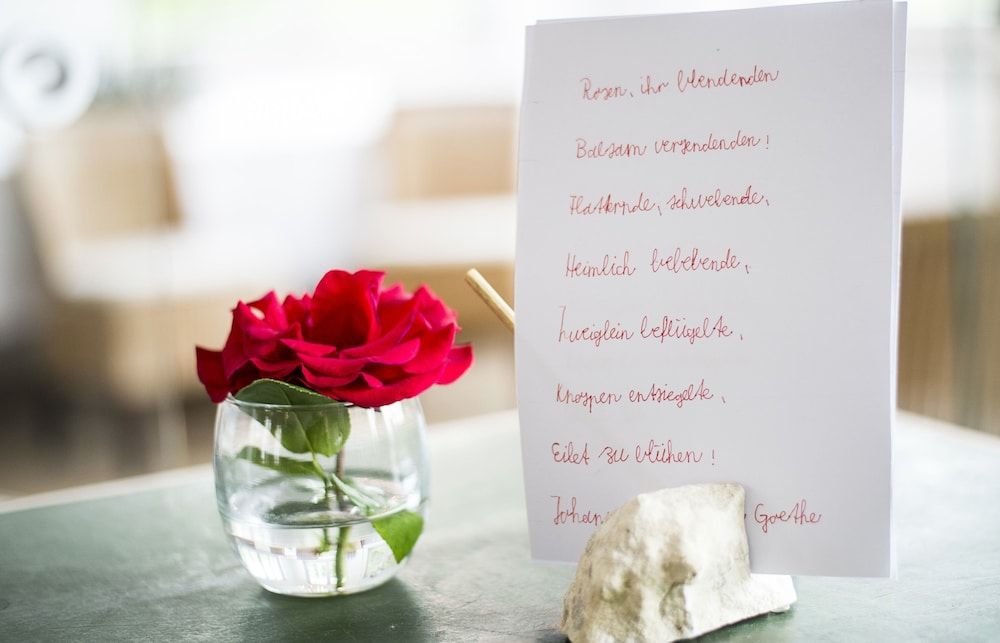 Rosen, ihr blendenden
Balsam versendenden!
Flatternde, schwebende,
Heimlich belebende,
Zweiglein beflügelte,
Knospen entsiegelte,
Eilet zu blühen!
Johan Goethe